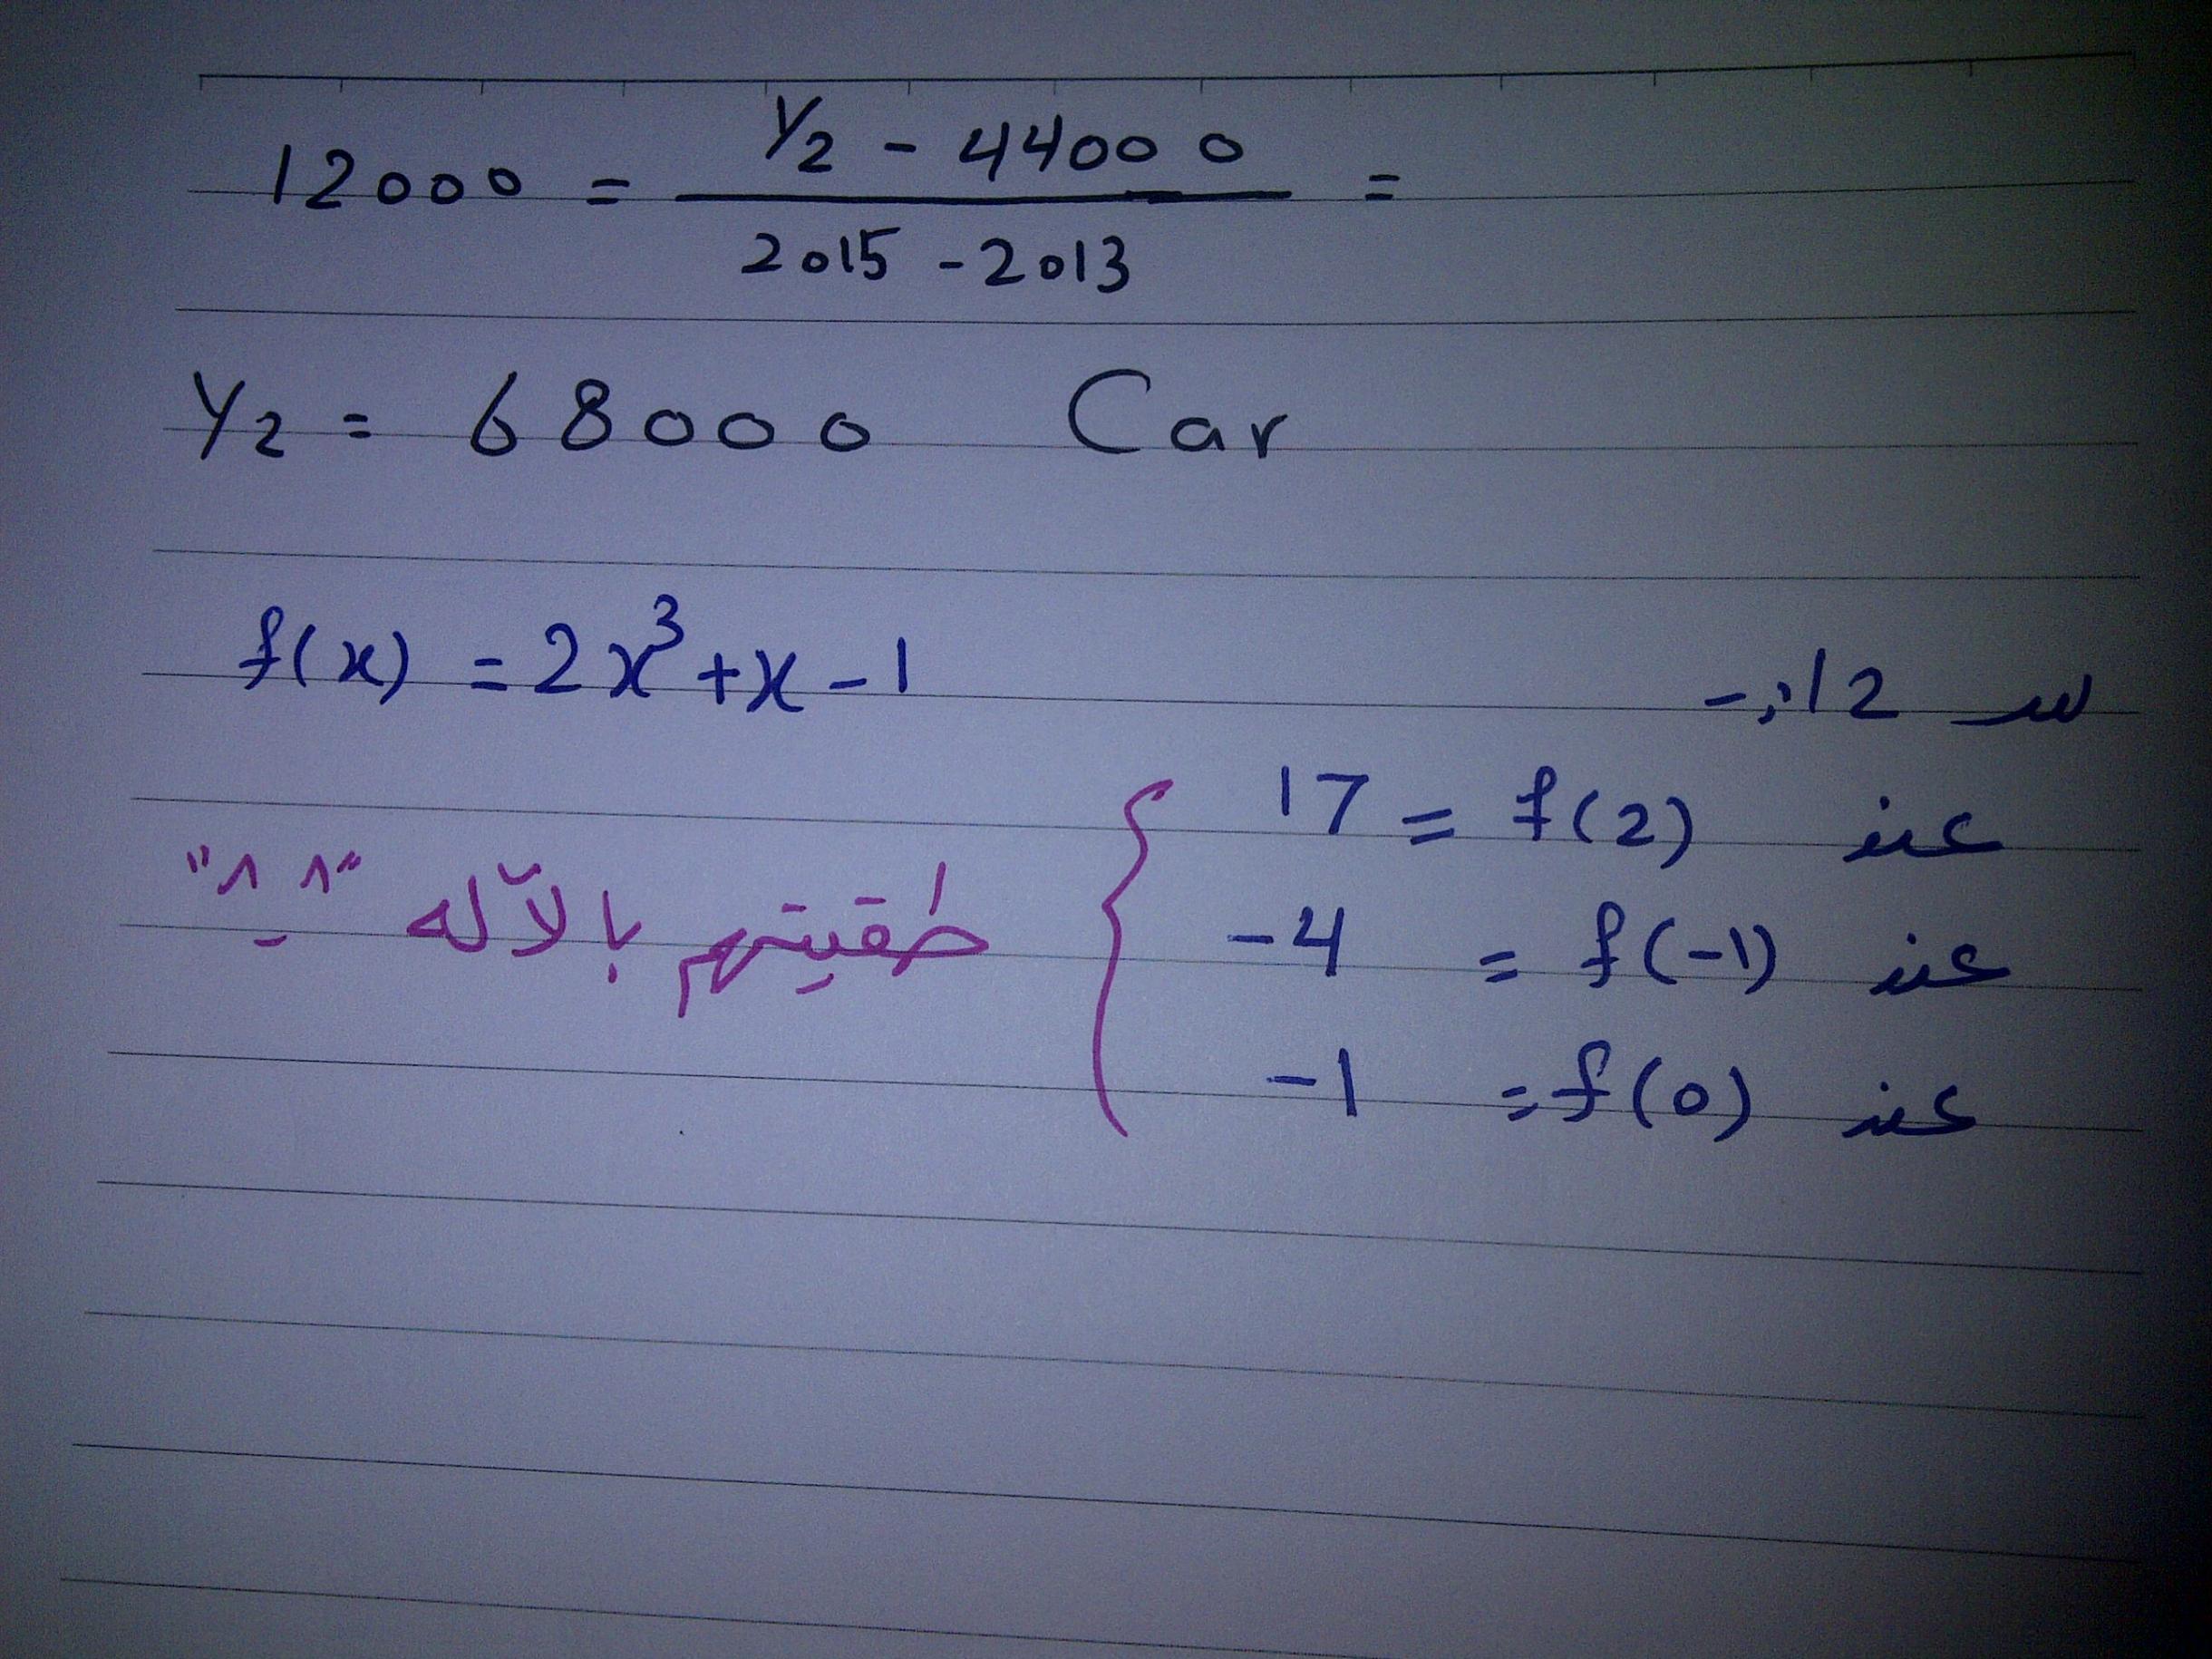 12000 = Y2 - 44000 / 2015 - 2013 =
Y2 = 68000 Car
س 12:-
f(x) = 2x³ + x - 1
عند f(2) = 17
عند f(-1) = -4
عند f(0) = -1
طقيتهم بالآله "^-^"